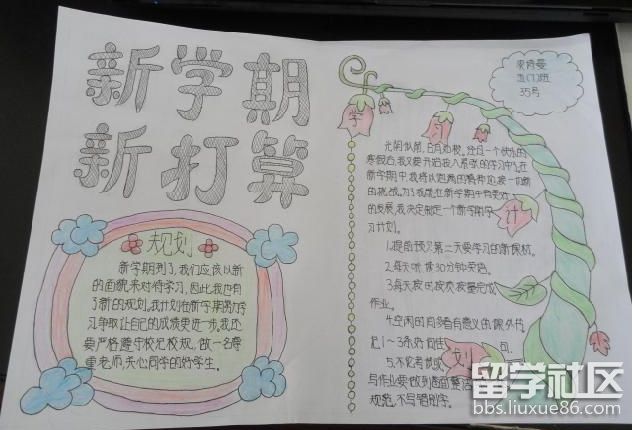 新学期
新打算
规划
新学期到了,我们应该以新
的面貌来对待学习,因此,我也有
了新的规划。我计划在新学期努力学
习争取让自己的成绩更进一步,我还
要严格遵守校纪校规,做一名尊
重老师,关心同学的好学生。
五(1)班
35号
学
习
计
划
光阴似箭,日月如梭,
寒假
在
新学期中,我将以饱满的精神迎接一切新
的挑战。为了我能在新学期中有更好
的发展,我决定制定一个新学期学
习计划。
1.提前预习第二天要学习的新课材。
2.每天听、读30分钟英语。
3.每天按时按质按量完成
作业。
4.空闲时间多看有意义的课外书,
记1~3条好词佳句。
5.不论考试或
写作业要做到卷面整洁
规范,不写错别字。
留学社区
bbs.liuxue86.com